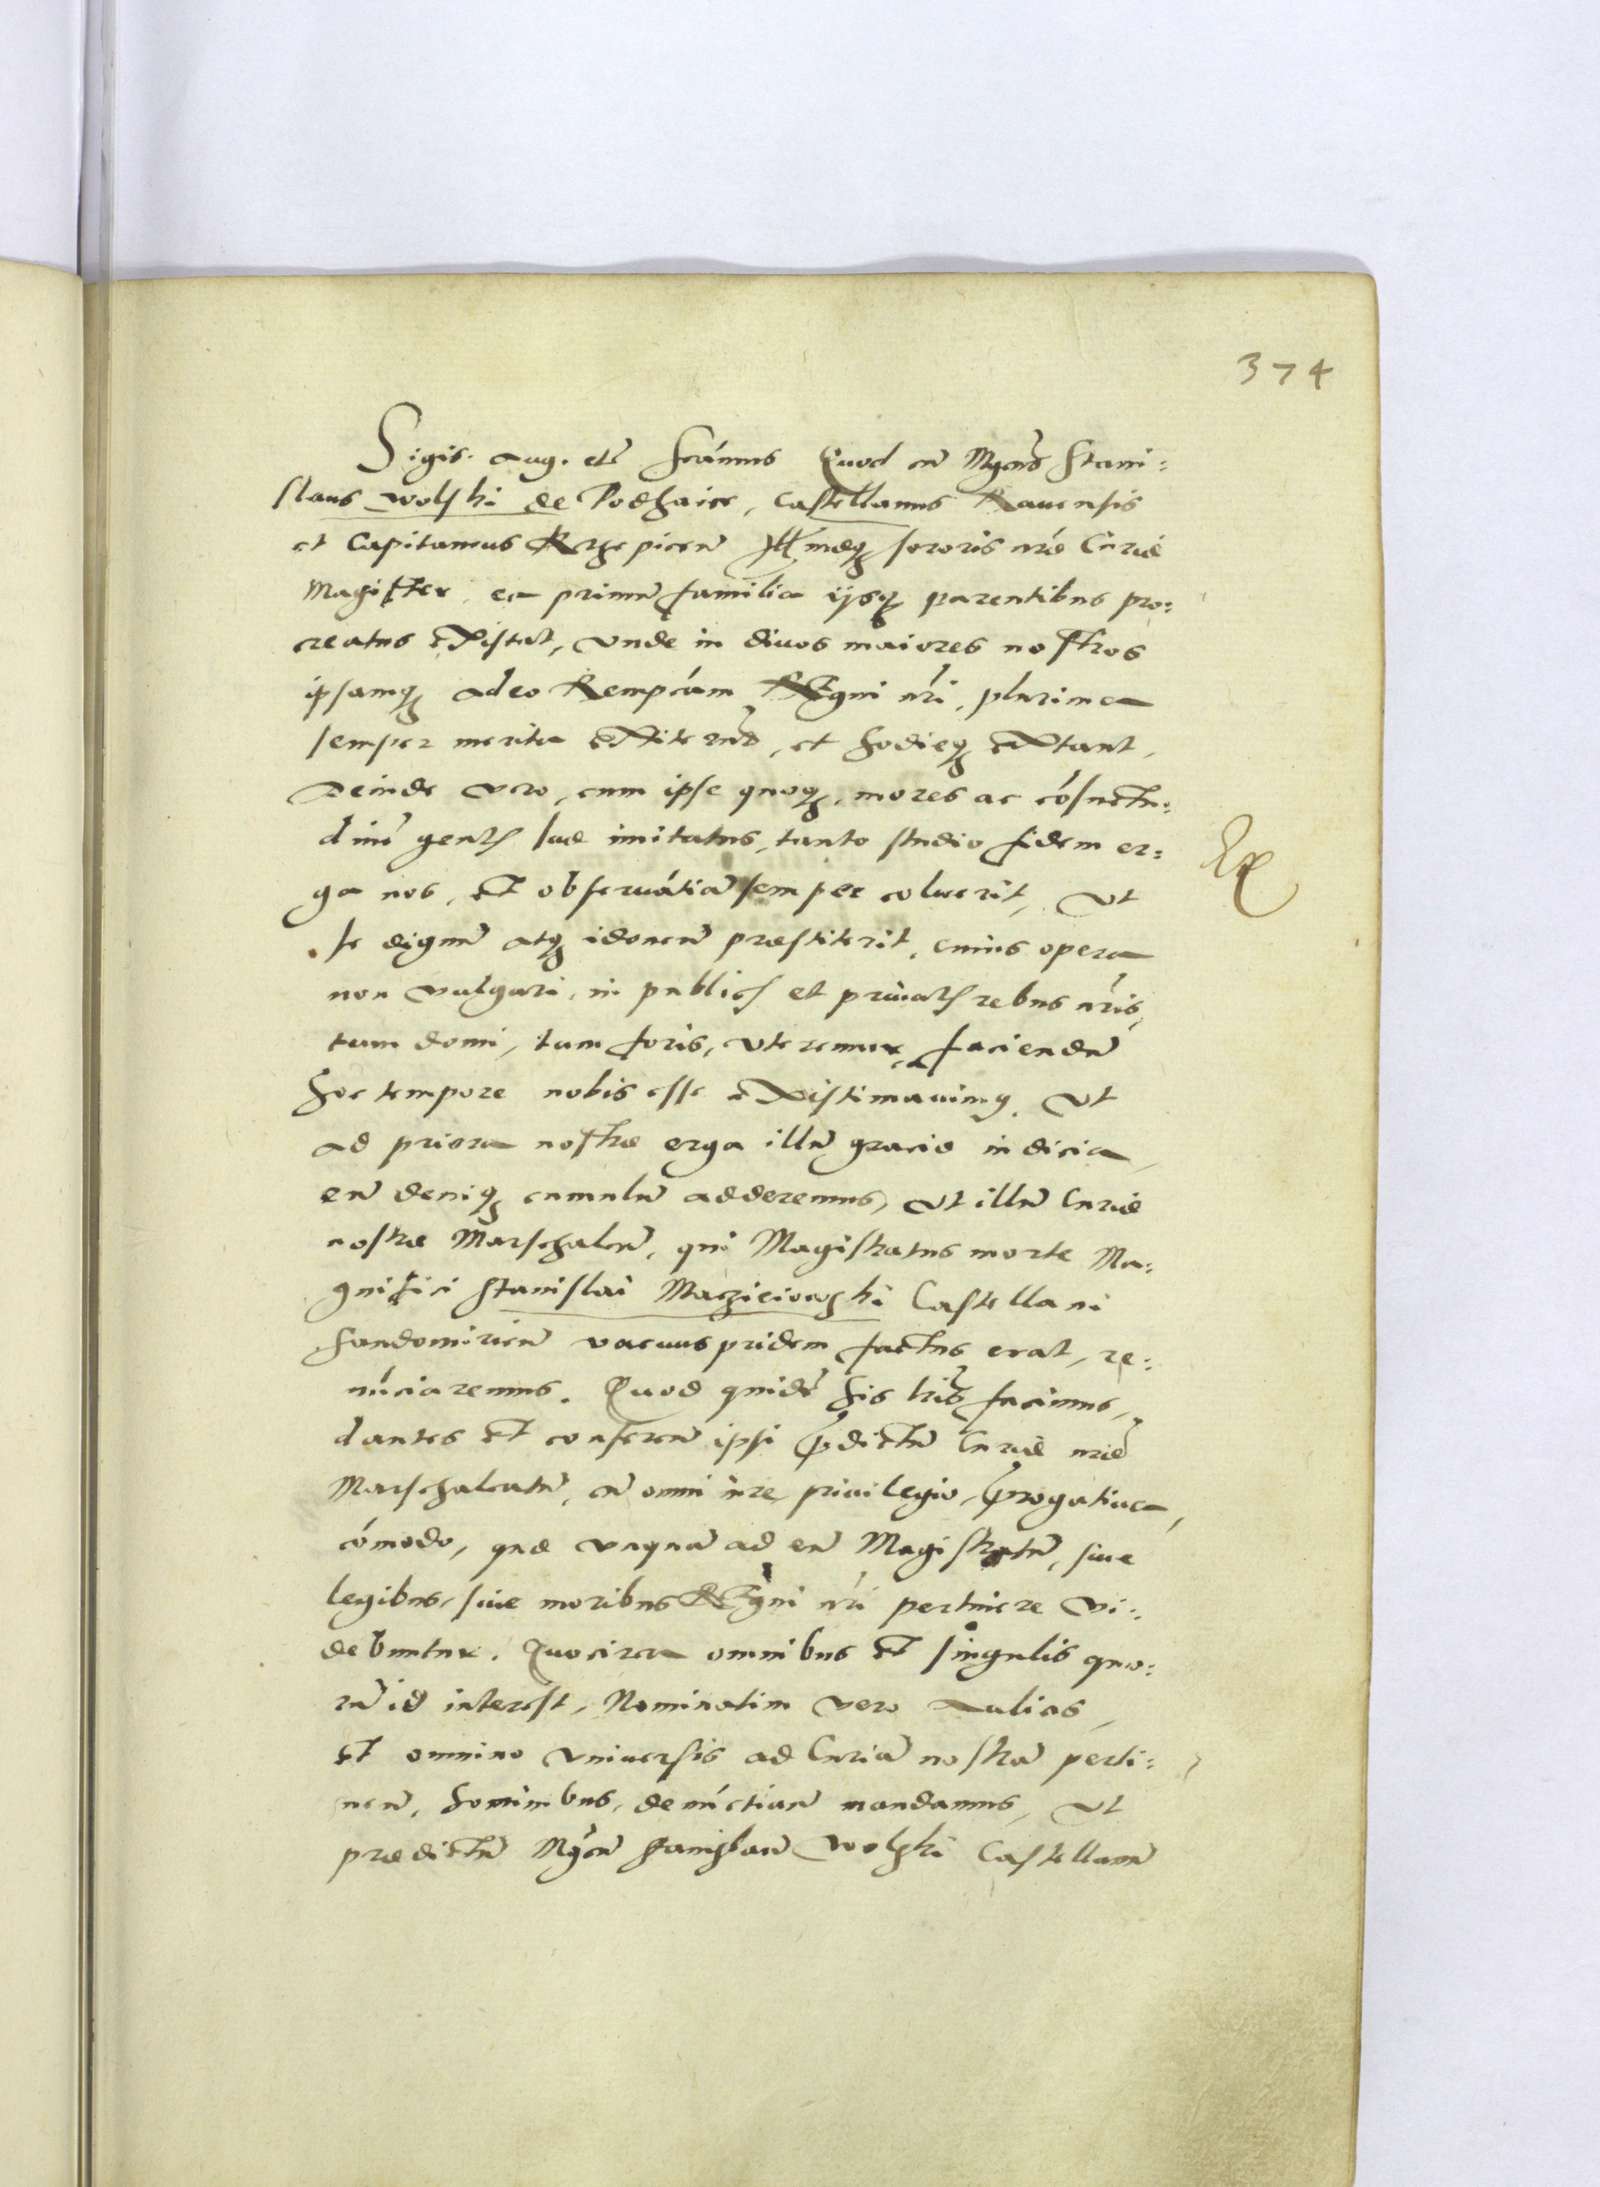 374
Sigis. Aug. etc̃ scámus Quod cũ Mgcus Stani:
slaus Wolski de Podhaice, Castellanus Rauensis
et Capitaneus Krzepicen̄ Illmæq; sororis nr̃æ Curiæ
Magister, ea primũ familia ijsq; parentibus pro:
creatus existat, vnde in diuos maiores nostros
ipsamq; adeo Rempcám Regni nr̃i, plurima
semper merita extiterunt, et hodieq; extant,
deinde vero, cum ipse quoq; mores ac cósuetu:
dinẽ gentis suæ imitatus, tanto studio fidem er:
ga nos, et obseruátiã semper coluerit, vt
se dignũ atq; idoneũ præstiterit, cuius opera
non vulgari, in publicis et priuatis rebus nr̃is,
tum domi, tum foris, vteremur, faciendũ
hoc tempore nobis esse existimauimus, vt
ad priora nostræ erga illũ graciæ indicia,
eũ deniq; cumulũ adderemus, vt illũ Curiæ
nostræ Marschalcũ, qui Magistratus morte Ma:
gnifici Stanislai Maczieiowski Castellani
Sandomirien̄ vacuus pridem factus erat, re:
núciaremus. Quod quidẽ his lr̃is facimus,
dantes et conferen̄ ipsi p̃dictũ Curiæ nr̃æ
Marschalcatũ, cũ omni iure, priuilegio, p̃rogatiua,
cómodo, quæ vnquã ad eũ Magistratũ, siue
legibus, siue moribus Regni nr̃i pertinere vi:
debuntur. Quocirca omnibus et singulis quo:
rũ id interest, Nominatim vero Aulicis,
et omnino vniuersis ad Curiã nostrã perti:
nen̄, hominibus, denúctian̄ mandamus, vt
prædictũ Mgcũ Stanislaũ Wolski Castellanũ